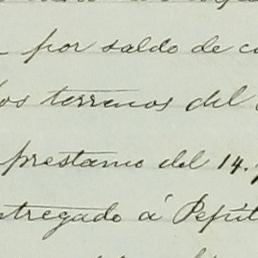 por saldo de
los terrenos del
prestamo del 14.
ntregado á Pepit